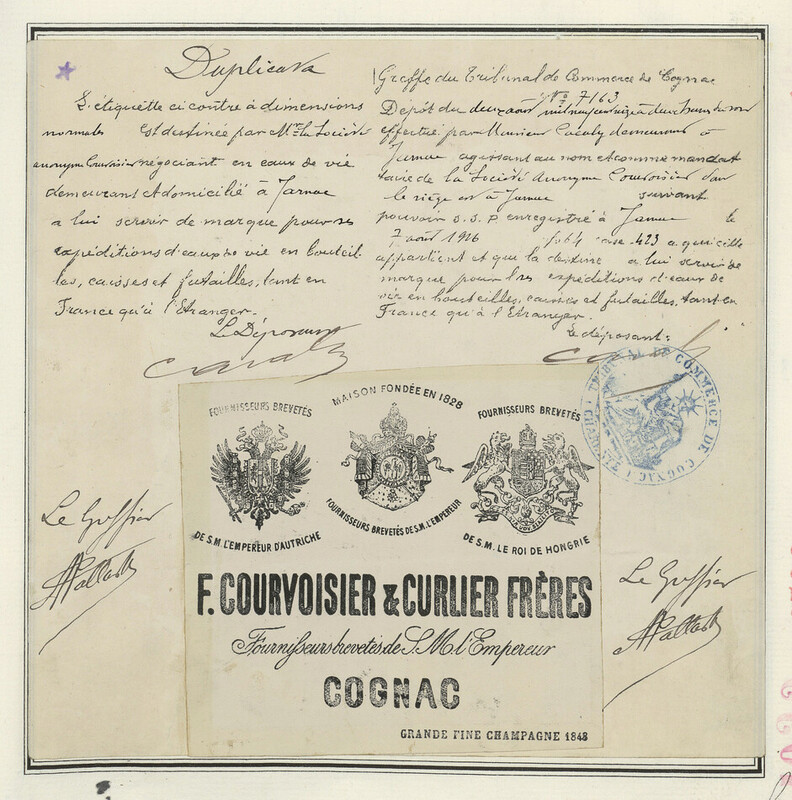 Duplicata
L'étiquette ci contre à dimensions
normales est destinée par la Société
anonyme Courvoisier négociant en eaux de vie
demeurant & domicilié à Jarnac
a lui servir de marque pour ses
expéditions d'eaux de vie en bouteil-
les, caisses et futailles, tant en
France qu'à l'Etranger.
Le Déposant
Greffe du Tribunal de Commerce de Cognac
No 7163
Dépôt du deux août mil neuf cent seize à deux heures du soir
effectué par Monsieur demeurant à
Jarnac agissant au nom et comme mandat
taire de la Société Anonyme Courvoisier dont
le siège est à Jarnac suivant
pouvoir S.S.P enregistré à Jarnac le
7 août 1916 fo 64 case 423 a qui elle
appartient et que la destine a lui servir de
marque pour les expéditions d'eaux de
vie en bouteilles, caisses et futailles, tant en
France qu'à l'Etranger.
Le déposant:
TRIBUNAL DE COMMERCE DE COGNAC
FOURNISSEURS BREVETÉS
DE S.M. L'EMPEREUR D'AUTRICHE
MAISON FONDÉE EN 1828
FOURNISSEURS BREVETÉS DE S.M. L'EMPEREUR
FOURNISSEURS BREVETÉS
DE S.M. LE ROI DE HONGRIE
F. COURVOISIER & CURLIER FRÈRES
Fournisseurs brevetés de S.M. l'Empereur
COGNAC
GRANDE FINE CHAMPAGNE 1848
Le Greffier
Le Greffier